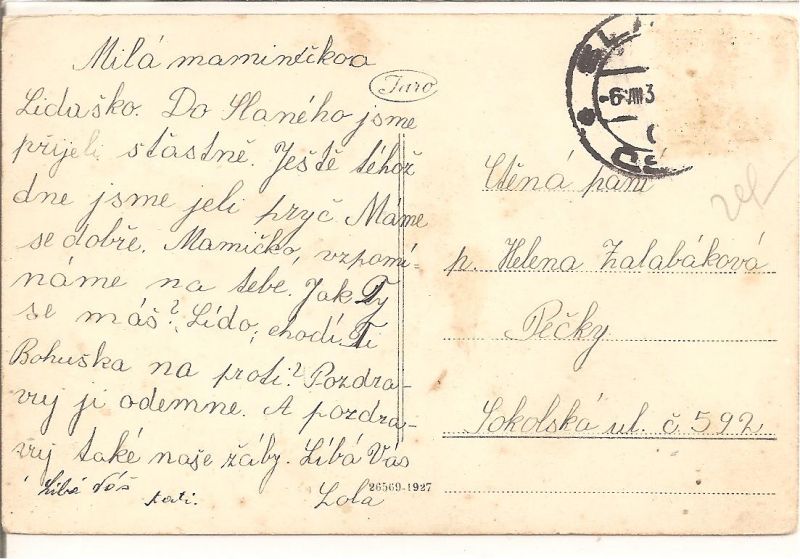 Milá maminčko a
Lidaško. Do Slaného jsme
přijeli šťastně. Ještě téhož
dne jsme jeli pryč Máme
se dobře. Mamičko, vzpomí-
náme na tebe. Jak Ty
se máš? Lído, chodí Ti
Bohuška na proti? Pozdra-
vuj ji odemne. A pozdra-
vuj také naše žáby. Líbá Vás
Lola
Líbá Vás
tati.
Turo
26569-1927
-6.VIII3
Ctěná paní
p. Helena Zalabáková
Pečky
Sokolská ul. č 592